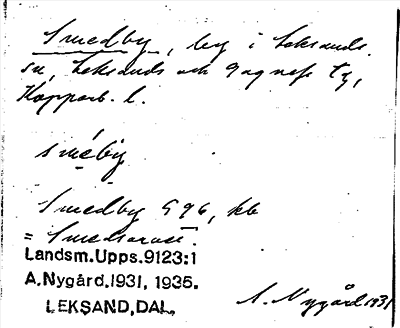 Smedby, by i Leksands
sn, Leksands och Gagnefs tg,
Kopparb. l.
sméby
Smedby 596, kb
= Smedsarvet.
Landsm.Upps.9123:1
A.Nygård.1931, 1935.
LEKSAND, DAL.
A. Nygård 1931